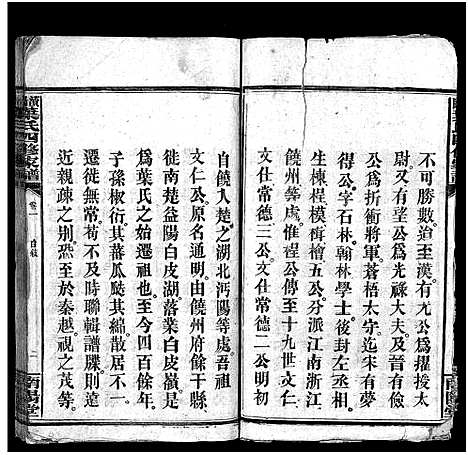 不可勝數迨至漢有尤公爲擢授太
尉又有望公爲光祿大夫及晉有儉
公爲折衝將軍蒼梧太守迄宋有夢
得公字石林翰林學士後封左丞相
生棟桯模楫檜五公分派江南浙江
饒州等處惟桯公傳至十九世文仁
文仕常德三公文仕常德二公明初
自饒入楚之湖北沔陽等處吾祖
文仁公原名通明由饒州府餘干縣
徙南楚益陽白皮湖落業白皮公
爲葉氏之始遷祖也至今四百餘年
子孫椒衍其蕃瓜瓞其綿散居不一
遷徙無常苟不及時聯輯譜牒則遠
近親疎之別恐至於秦越視之茂等
葉氏四修家譜
卷一
自敍
二
南陽堂
南陽堂